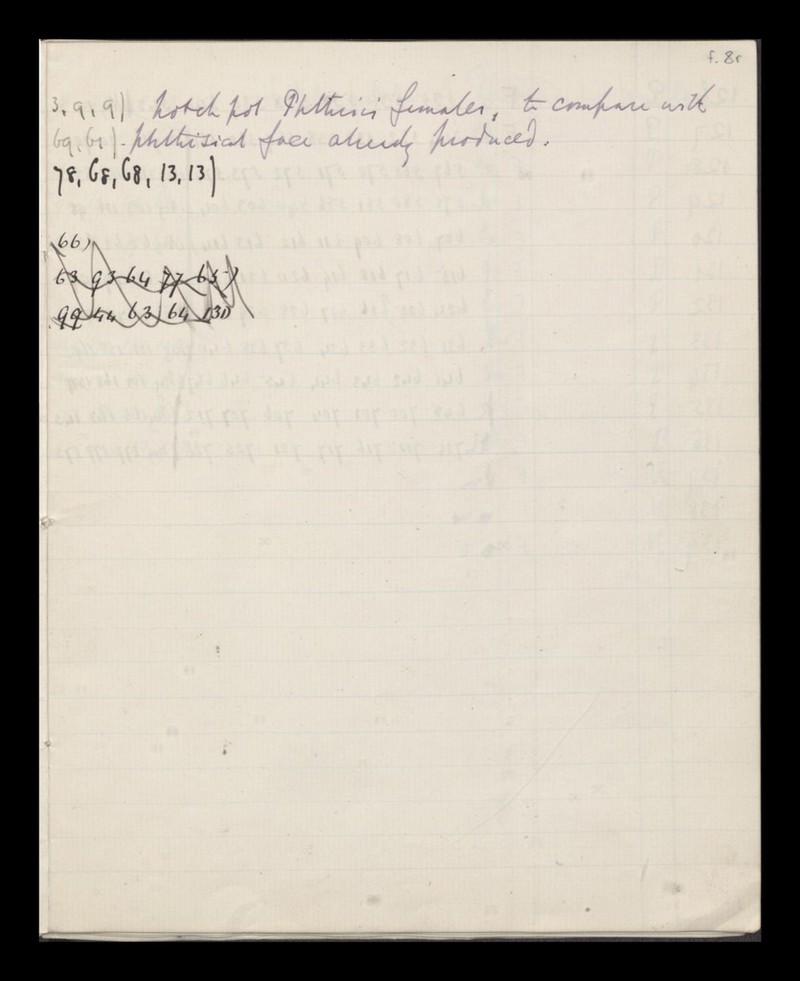 f. 8r
3, 9, 9) hotch pot Phthisis females, to compare with
69, 61) - phthisical face already produced.
78, 68, 68, 13, 13)
66)
63 93 64 77 63)
99 44 63 64 131)